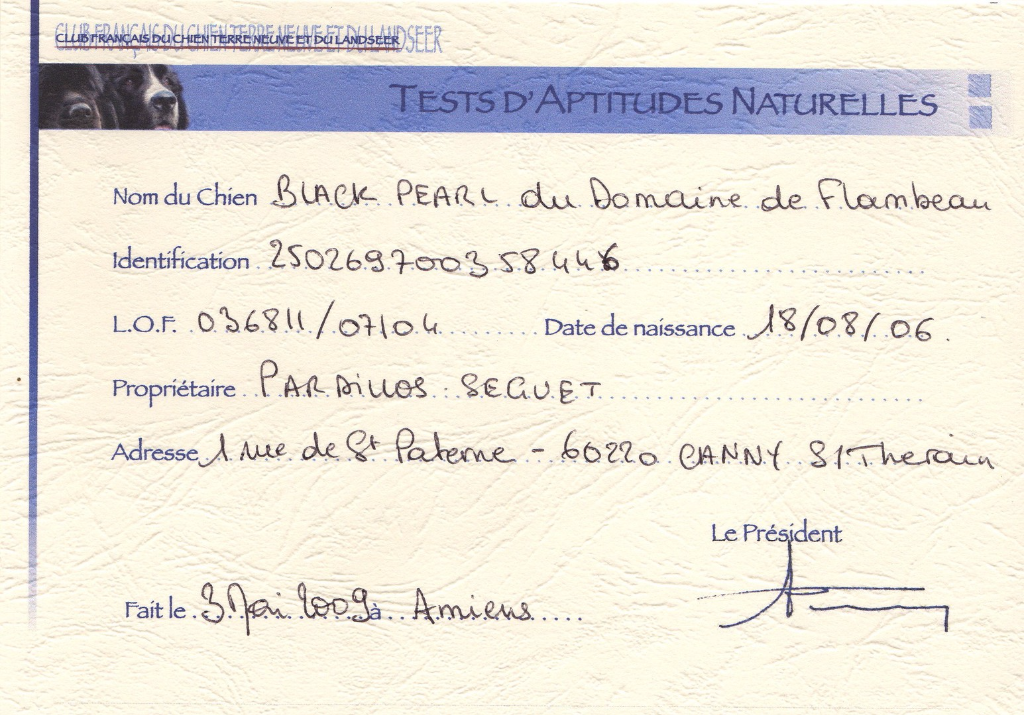 CLUB FRANÇAIS DU CHIEN TERRE NEUVE ET DU LANDSEER
CLUB FRANÇAIS DU CHIEN TERRE NEUVE ET DU LANDSEER
TESTS D'APTITUDES NATURELLES
Nom du Chien BLACK PEARL du Domaine de Flambeau
Identification 250269700358446
L.O.F. 036811/07104 Date de naissance 18/08/06
Propriétaire PARDILLOS SEGUET
Adresse 1 rue de St Paterne - 60220 CANNY S/Therain
Le Président
Fait le 3 Mai 2009 à Amiens